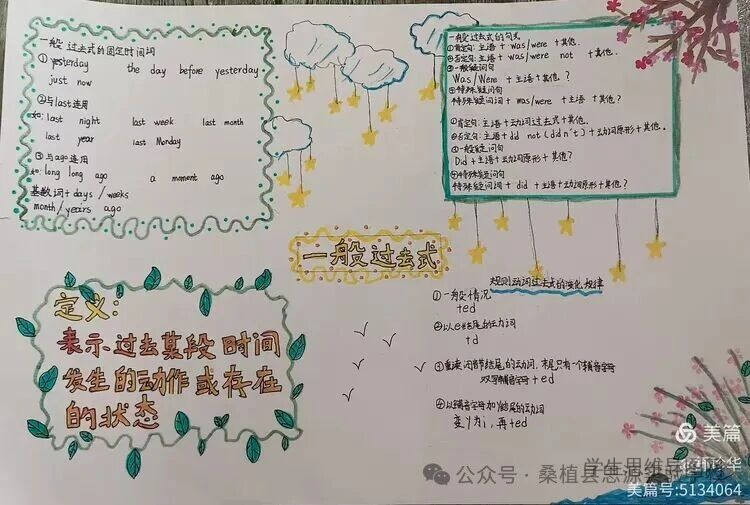 一般过去式的固定时间词
① yesterday the day before yesterday
just now
②与last连用
如: last night last week last month
last year last Monday
③与ago连用
如: long long ago a moment ago
基数词+days/weeks
month/years ago
一般过去式的句式
①肯定句: 主语 + was/were + 其他.
②否定句: 主语 + was/were not + 其他.
③一般疑问句
Was/Were + 主语 + 其他?
④特殊疑问句
特殊疑问词 + was/were + 主语 + 其他?
①肯定句: 主语+动词过去式+其他.
②否定句: 主语+did not(didn't)+动词原形+其他.
③一般疑问句
Did+主语+动词原形+其他?
④特殊疑问句
特殊疑问词 + did +主语+动词原形+其他?
一般过去式
定义:
表示过去某段时间
发生的动作或存在
的状态
规则动词过去式的变化规律
①一般情况
+ed
②以e结尾的动词
+d
③重读闭音节结尾的动词,末尾只有一个辅音字母
双写辅音字母+ed
④以辅音字母加y结尾的动词
变y为i,再+ed
美篇
学生思维导
公众号·桑植县思源
美篇号:5134064